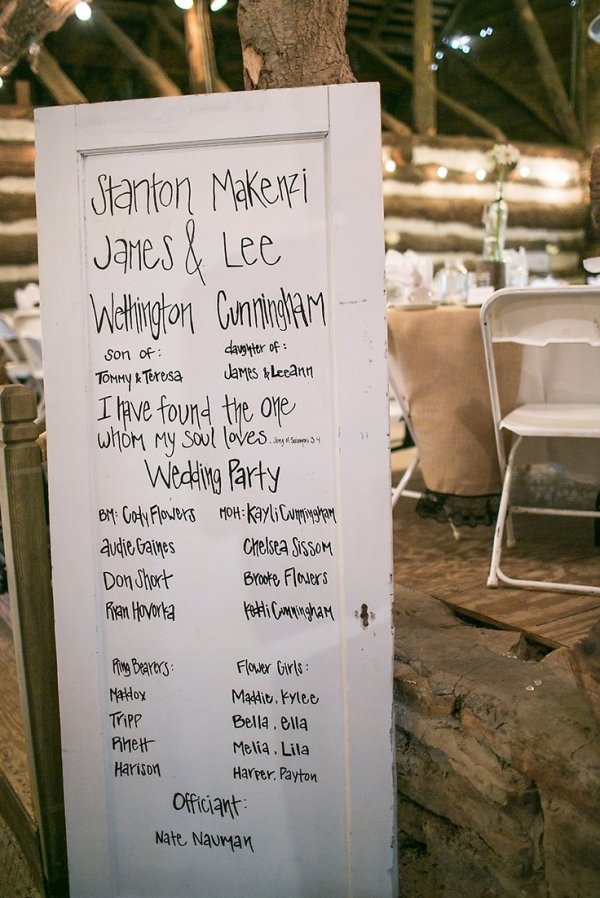 Stanton Makenzi
James & Lee
Wethington Cunningham
son of: daughter of:
Tommy & Teresa James & Leeann
I have found the one
whom my soul loves. Song of Solomon 3:4
Wedding Party
BM: Cody Flowers MOH: Kayli Cunningham
Audie Gaines Chelsea Sissom
Don Short Brooke Flowers
Ryan Hovorka Keddi Cunningham
Ring Bearers: Flower Girls:
Maddox Maddie, Kylee
Tripp Bella, Ella
Rhett Melia, Lila
Harison Harper, Payton
Officiant:
Nate Nauman